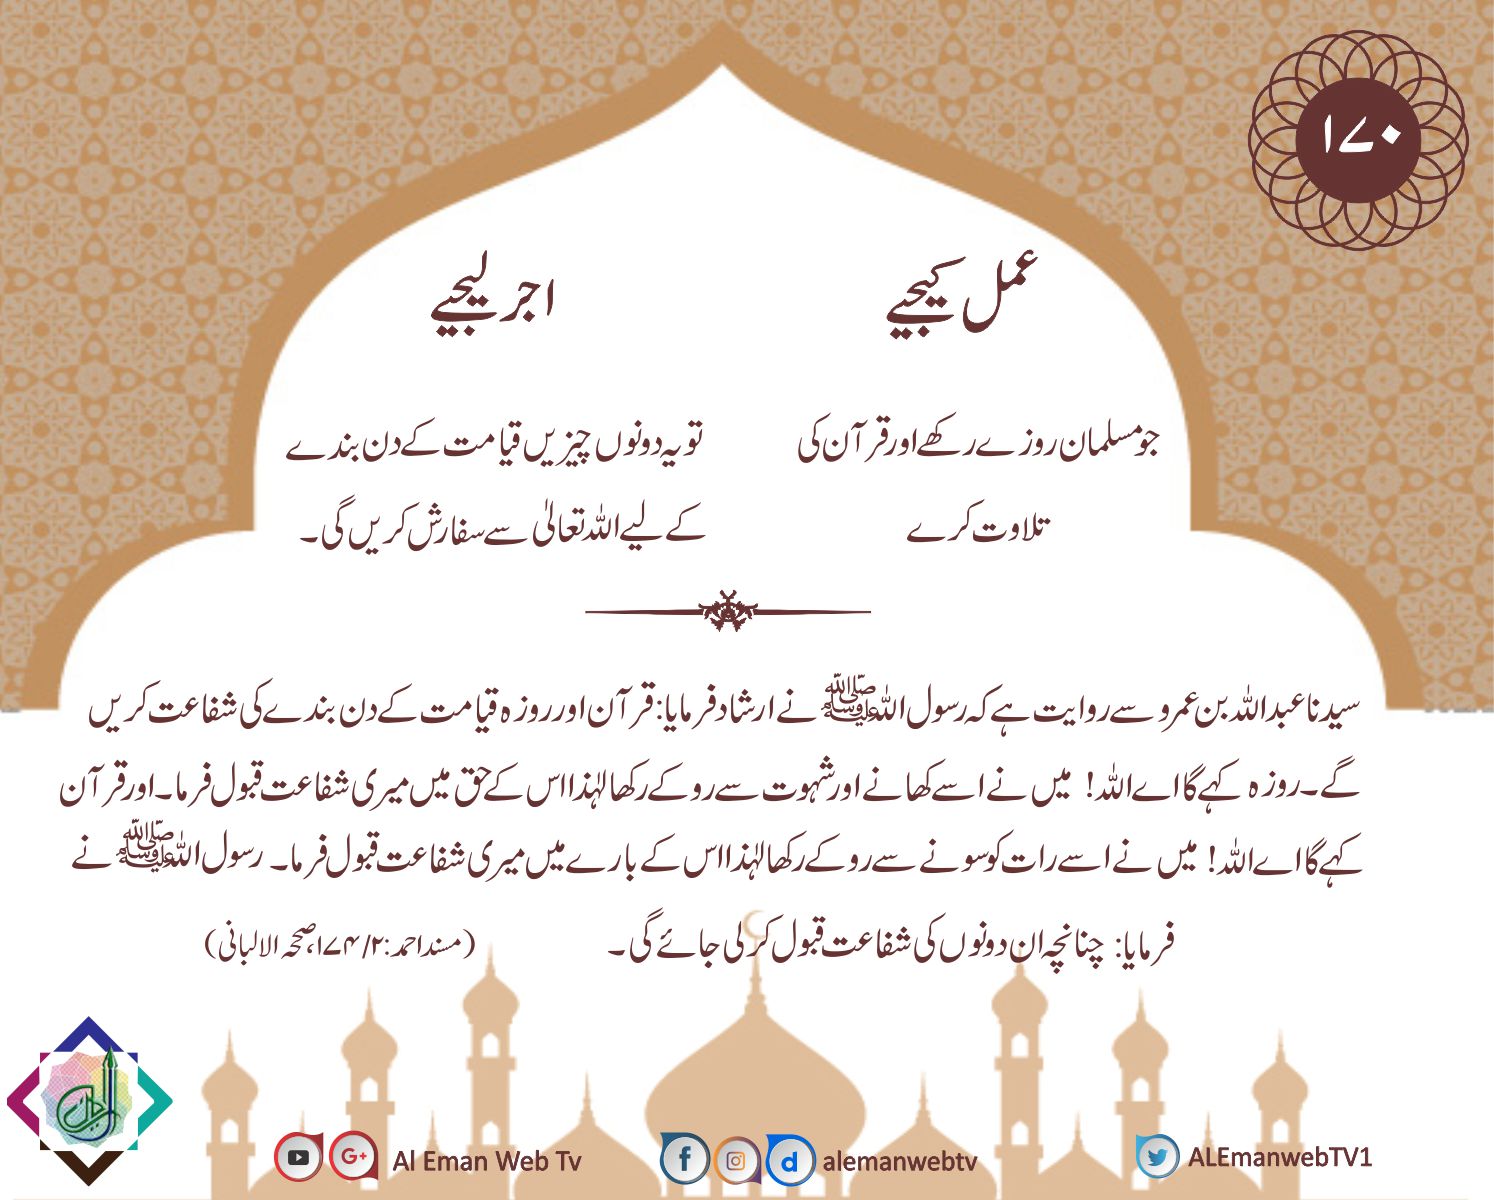 ۱۷۰
عمل کیجیے
اجر لیجیے
جو مسلمان روزے رکھے اور قرآن کی
تلاوت کرے
تو یہ دونوں چیزیں قیامت کے دن بندے
کے لیے اللہ تعالیٰ سے سفارش کریں گی۔
سیدنا عبداللہ بن عمرو سے روایت ہے کہ رسول اللہ ﷺ نے ارشاد فرمایا: قرآن اور روزہ قیامت کے دن بندے کی شفاعت کریں
گے۔ روزہ کہے گا اے اللہ! میں نے اسے کھانے اور شہوت سے روکے رکھا لہٰذا اس کے حق میں میری شفاعت قبول فرما۔ اور قرآن
کہے گا اے اللہ! میں نے اسے رات کو سونے سے روکے رکھا لہٰذا اس کے بارے میں میری شفاعت قبول فرما۔ رسول اللہ ﷺ نے
فرمایا: چنانچہ ان دونوں کی شفاعت قبول کر لی جائے گی۔ (مسند احمد: ۱۷۴/۲، صححہ الالبانی)
Al Eman Web Tv
alemanwebtv
ALEmanwebTV1